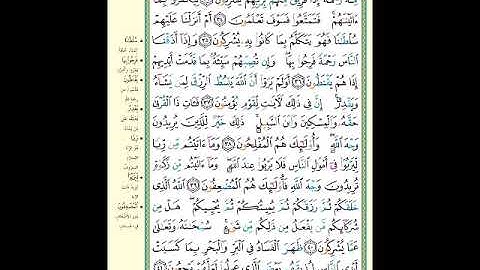 مِّنْهُ رَحْمَةً إِذَا فَرِيقٌ مِّنْهُم بِرَبِّهِمْ يُشْرِكُونَ ٣٣ لِيَكْفُرُوا۟ بِمَآ
ءَاتَيْنَٰهُمْ فَتَمَتَّعُوا۟ فَسَوْفَ تَعْلَمُونَ ٣٤ أَمْ أَنزَلْنَا عَلَيْهِمْ
سُلْطَٰنًا فَهُوَ يَتَكَلَّمُ بِمَا كَانُوا۟ بِهِۦ يُشْرِكُونَ ٣٥ وَإِذَآ أَذَقْنَا
ٱلنَّاسَ رَحْمَةً فَرِحُوا۟ بِهَا وَإِن تُصِبْهُمْ سَيِّئَةٌۢ بِمَا قَدَّمَتْ أَيْدِيهِمْ
إِذَا هُمْ يَقْنَطُونَ ٣٦ أَوَلَمْ يَرَوْا۟ أَنَّ ٱللَّهَ يَبْسُطُ ٱلرِّزْقَ لِمَن يَشَآءُ
وَيَقْدِرُ إِنَّ فِى ذَٰلِكَ لَءَايَٰتٍ لِّقَوْمٍ يُؤْمِنُونَ ٣٧ فَـَٔاتِ ذَا ٱلْقُرْبَىٰ
حَقَّهُۥ وَٱلْمِسْكِينَ وَٱبْنَ ٱلسَّبِيلِ ذَٰلِكَ خَيْرٌ لِّلَّذِينَ يُرِيدُونَ
وَجْهَ ٱللَّهِ وَأُو۟لَٰٓئِكَ هُمُ ٱلْمُفْلِحُونَ ٣٨ وَمَآ ءَاتَيْتُم مِّن رِّبًا
لِّيَرْبُوَا۟ فِىٓ أَمْوَٰلِ ٱلنَّاسِ فَلَا يَرْبُوا۟ عِندَ ٱللَّهِ وَمَآ ءَاتَيْتُم مِّن زَكَوٰةٍ
تُرِيدُونَ وَجْهَ ٱللَّهِ فَأُو۟لَٰٓئِكَ هُمُ ٱلْمُضْعِفُونَ ٣٩ ٱللَّهُ ٱلَّذِى
خَلَقَكُمْ ثُمَّ رَزَقَكُمْ ثُمَّ يُمِيتُكُمْ ثُمَّ يُحْيِيكُمْ هَلْ مِن
شُرَكَآئِكُم مَّن يَفْعَلُ مِن ذَٰلِكُم مِّن شَىْءٍ سُبْحَٰنَهُۥ وَتَعَٰلَىٰ
عَمَّا يُشْرِكُونَ ٤٠ ظَهَرَ ٱلْفَسَادُ فِى ٱلْبَرِّ وَٱلْبَحْرِ بِمَا كَسَبَتْ
أَيْدِى ٱلنَّاسِ لِيُذِيقَهُم بَعْضَ ٱلَّذِى عَمِلُوا۟ لَعَلَّهُمْ يَرْجِعُونَ ٤١
سُلْطَانًا
فَرِحُوا بِهَا
يَقْنَطُونَ